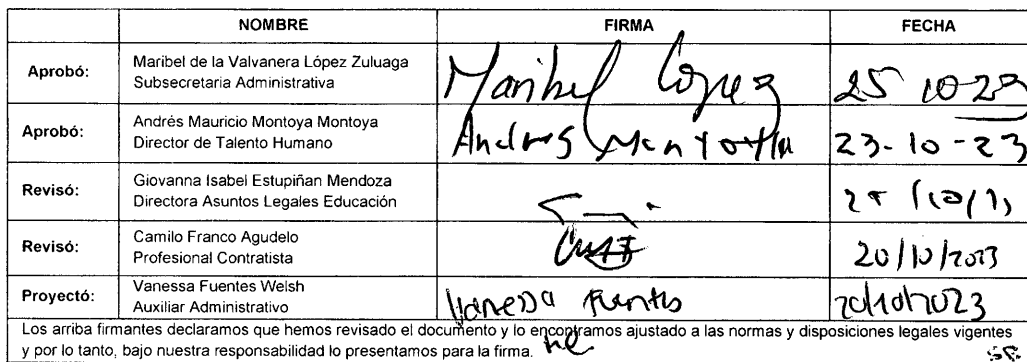 NOMBRE FIRMA FECHA
Aprobó: Maribel de la Valvanera López Zuluaga
Subsecretaria Administrativa Maribel López 25 10-23
Aprobó: Andrés Mauricio Montoya Montoya
Director de Talento Humano Andres Montoya 23-10-23
Revisó: Giovanna Isabel Estupiñan Mendoza
Directora Asuntos Legales Educación
Revisó: Camilo Franco Agudelo
Profesional Contratista 20/10/2023
Proyectó: Vanessa Fuentes Welsh
Auxiliar Administrativo Vanessa Fuentes 20/10/2023
Los arriba firmantes declaramos que hemos revisado el documento y lo encontramos ajustado a las normas y disposiciones legales vigentes
y por lo tanto, bajo nuestra responsabilidad lo presentamos para la firma.